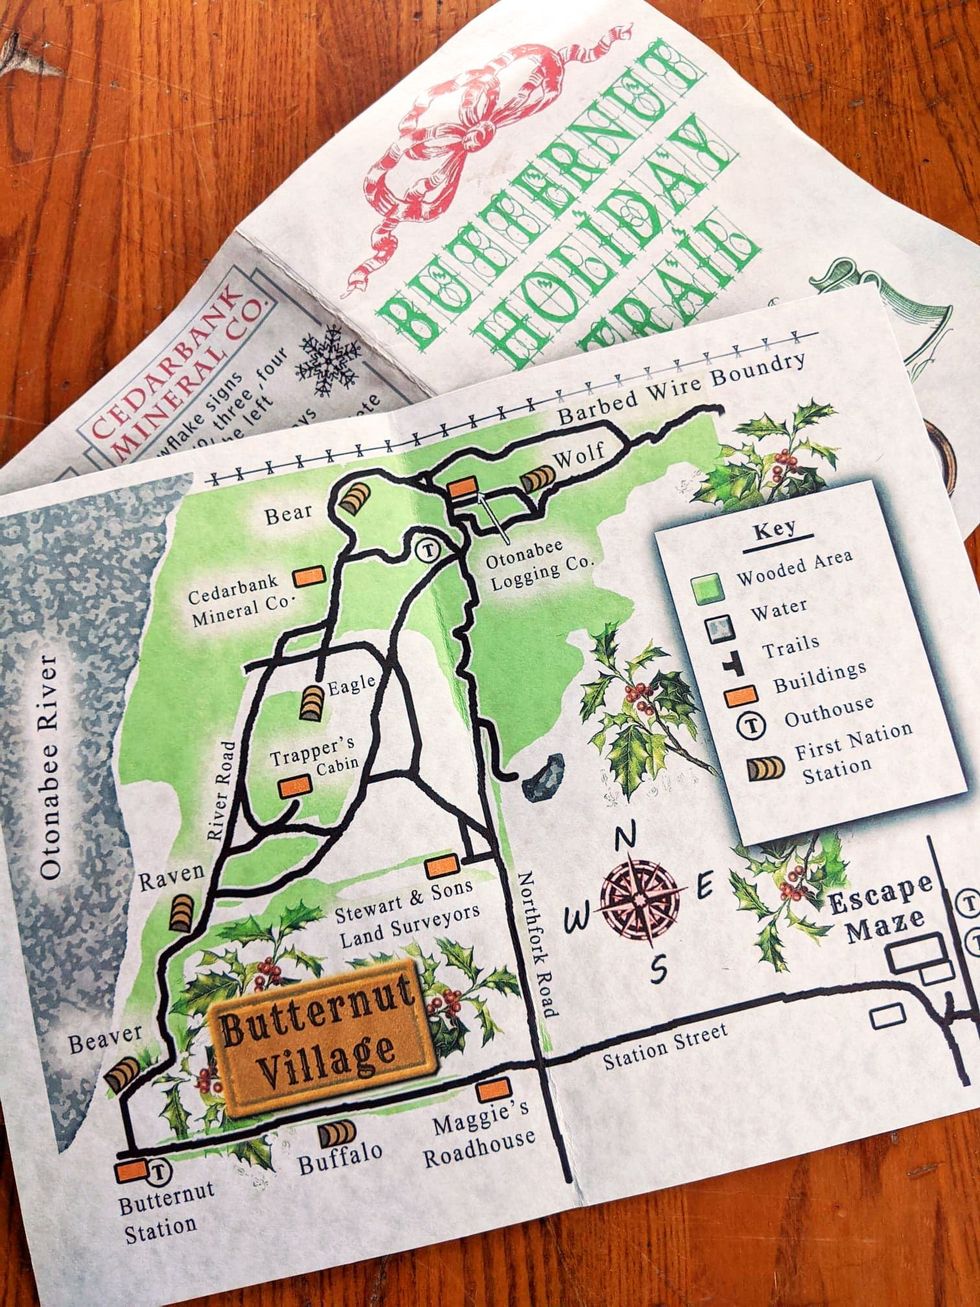 BUTTERNUT
HOLIDAY
TRAIL
CEDARBANK
MINERAL CO.
signs
three, four
left
Barbed Wire Boundry
Wolf
Bear
Otonabee
Logging Co.
Cedarbank
Mineral Co.
T
Eagle
Trapper's
Cabin
River Road
Otonabee River
Raven
Stewart & Sons
Land Surveyors
Northfork Road
Beaver
Butternut
Village
Station Street
Maggie's
Roadhouse
Buffalo
T
Butternut
Station
Key
Wooded Area
Water
Trails
Buildings
T Outhouse
First Nation
Station
N
W E
S
Escape
Maze
T